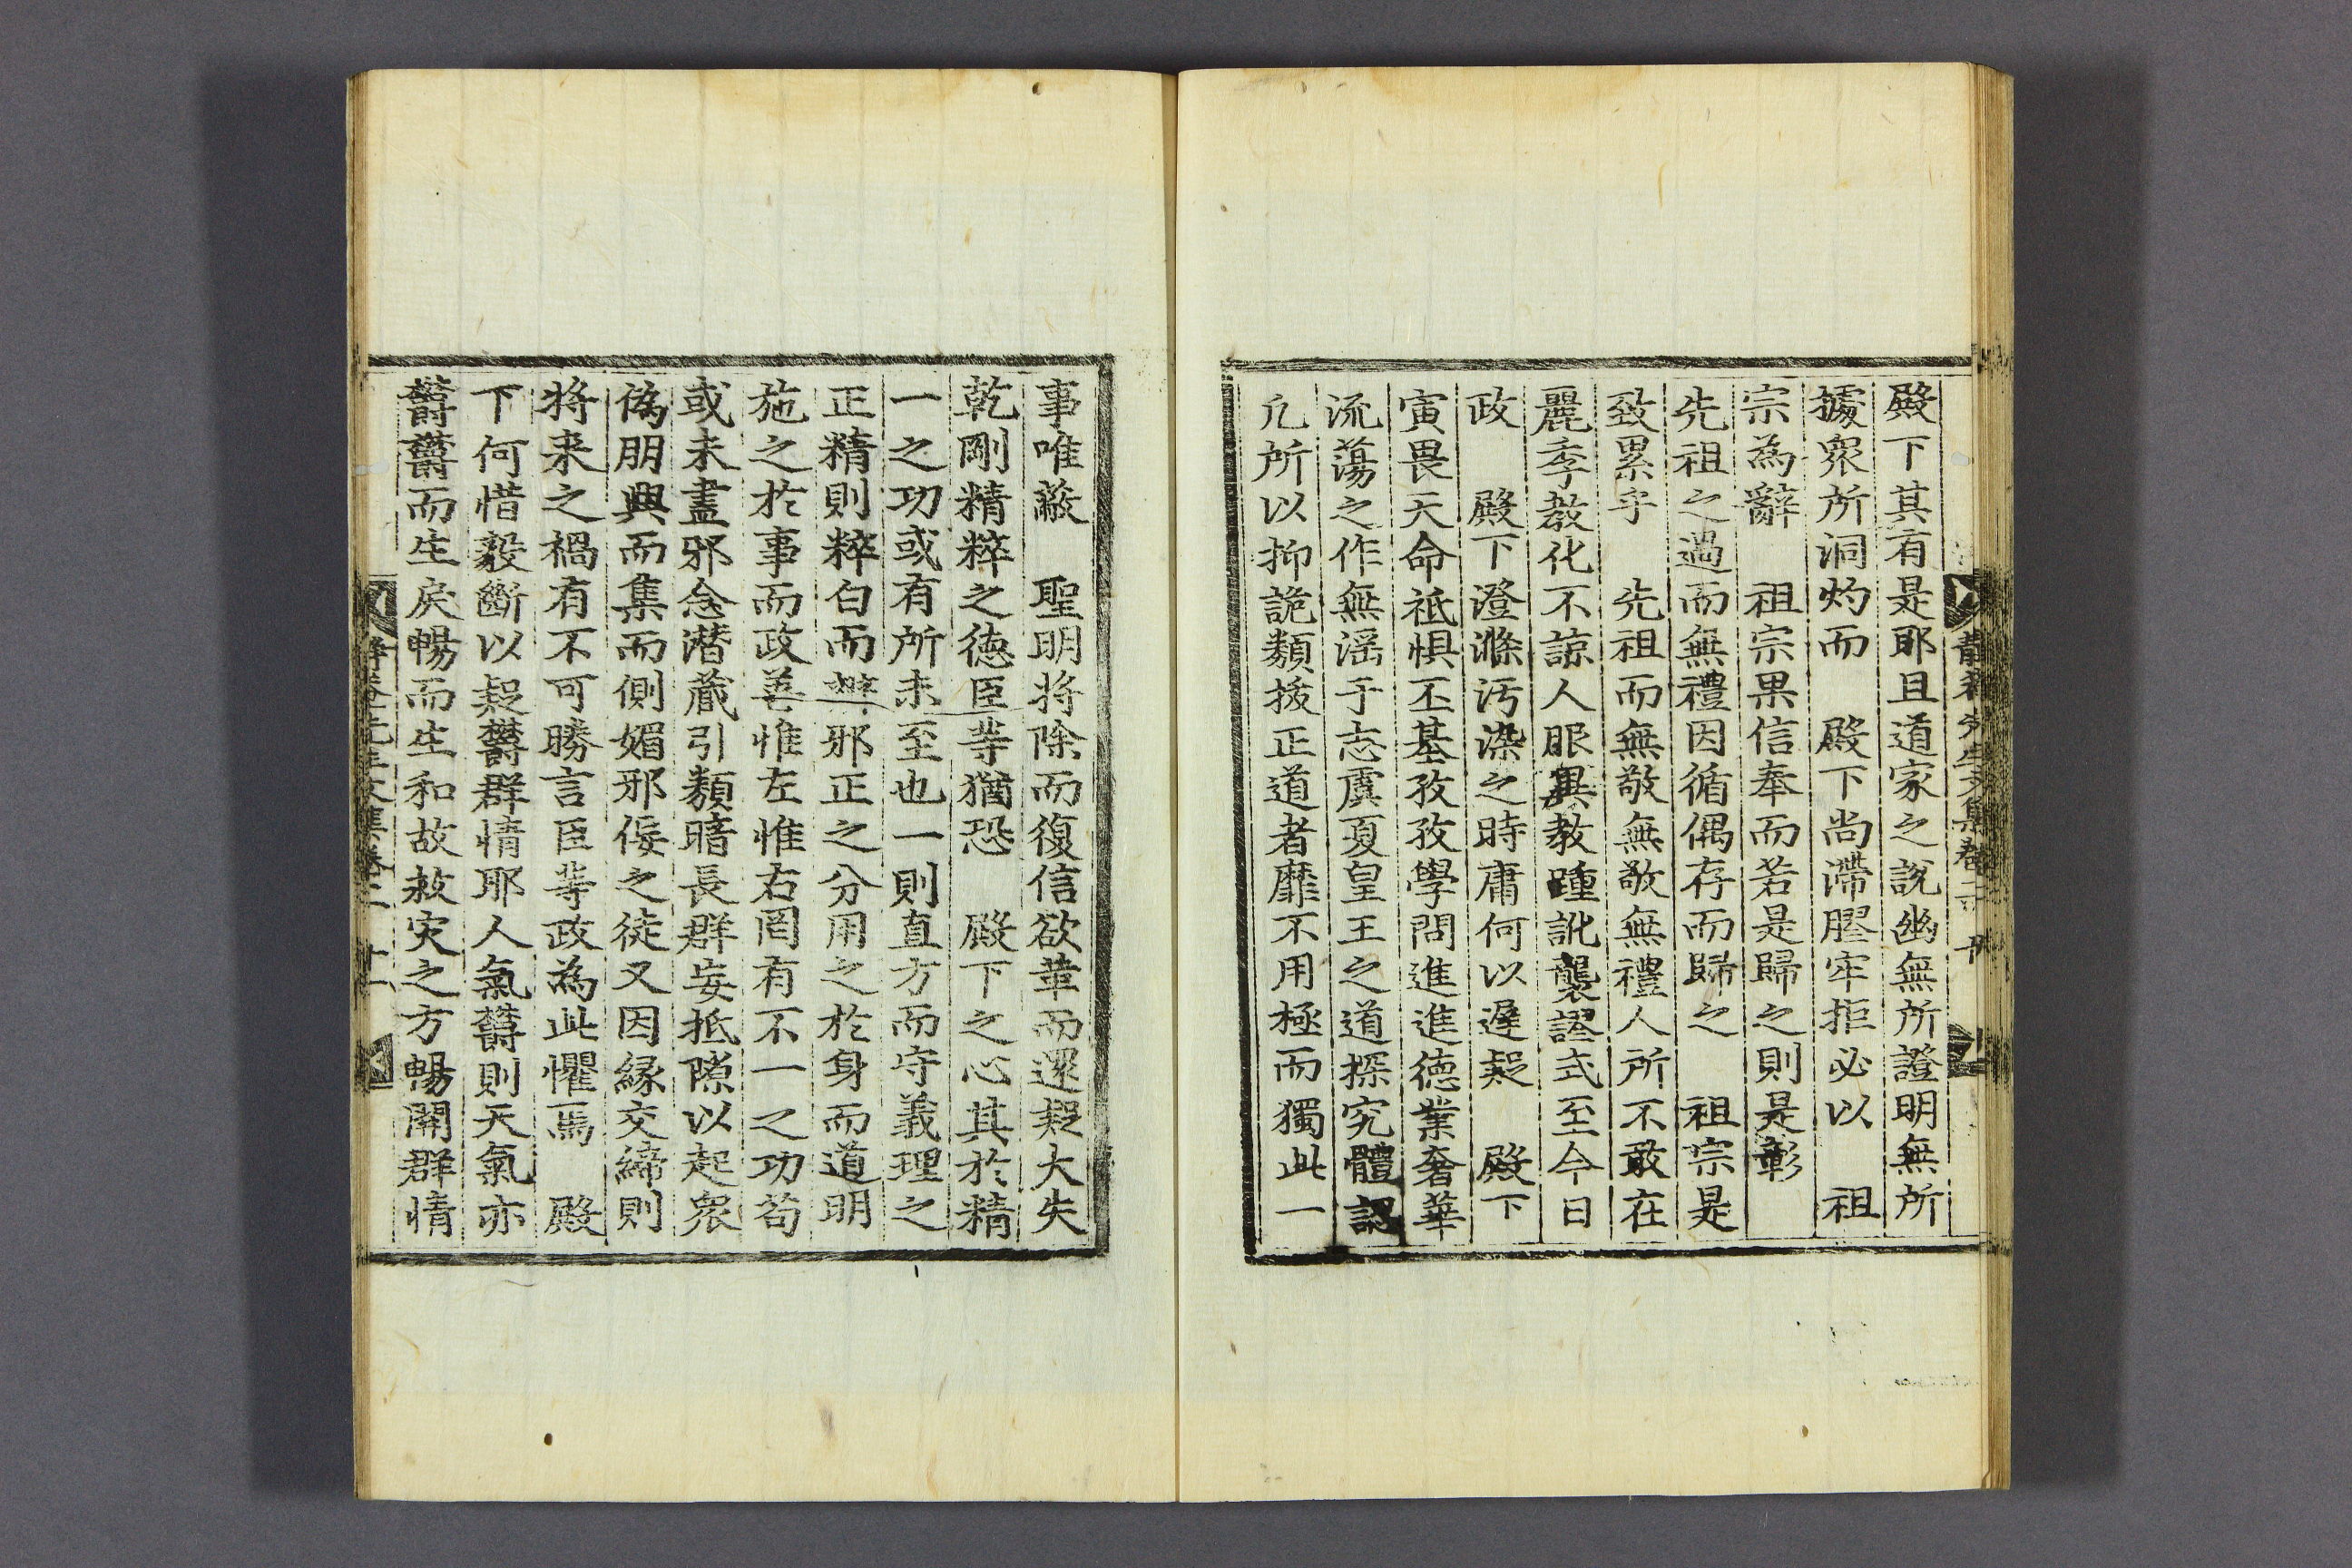 殿下其有是耶且道家之說幽無所證明無所
據衆所洞灼而　殿下尚滯膠牢拒必以　祖
宗為辭　祖宗果信奉而若是歸之則是彰
先祖之過而無禮因循偶存而歸之　祖宗是
致累乎　先祖而無敬無敬無禮人所不敢在
麗季教化不諒人眼異教踵訛襲謬式至今日
政　殿下澄滌汚染之時庸何以遲疑　殿下
寅畏天命祗惧丕基孜孜學問進進德業奢華
流蕩之作無滛于志虞夏皇王之道探究體認
凢所以抑詭類掖正道者靡不用極而獨此一
事唯蔽　聖明将除而復信欲革而還疑大失
乾剛精粹之德臣等猶恐　殿下之心其於精
一之功或有所未至也一則直方而守義理之
正精則粹白而辨邪正之分用之於身而道明
施之於事而政善惟左惟右罔有不一之功苟
或未盡邪念潜藏引類暗長群妄抵隙以起衆
偽朋興而集而側媚邪佞之徒又因緣交締則
将来之禍有不可勝言臣等政為此懼焉　殿
下何惜毅斷以疑欝群情耶人氣欝則天氣亦
欝欝而生戾暢而生和故救灾之方暢開群情